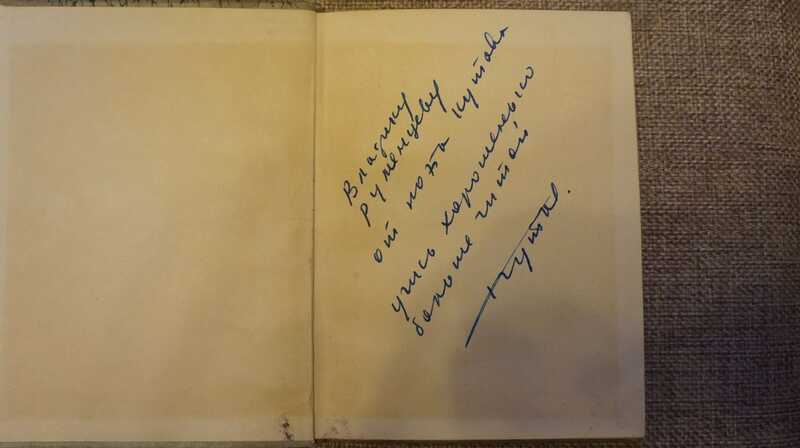 Владику
Румянцеву
от поэта Кутова
учись хорошенько
больше читай
Кутов.